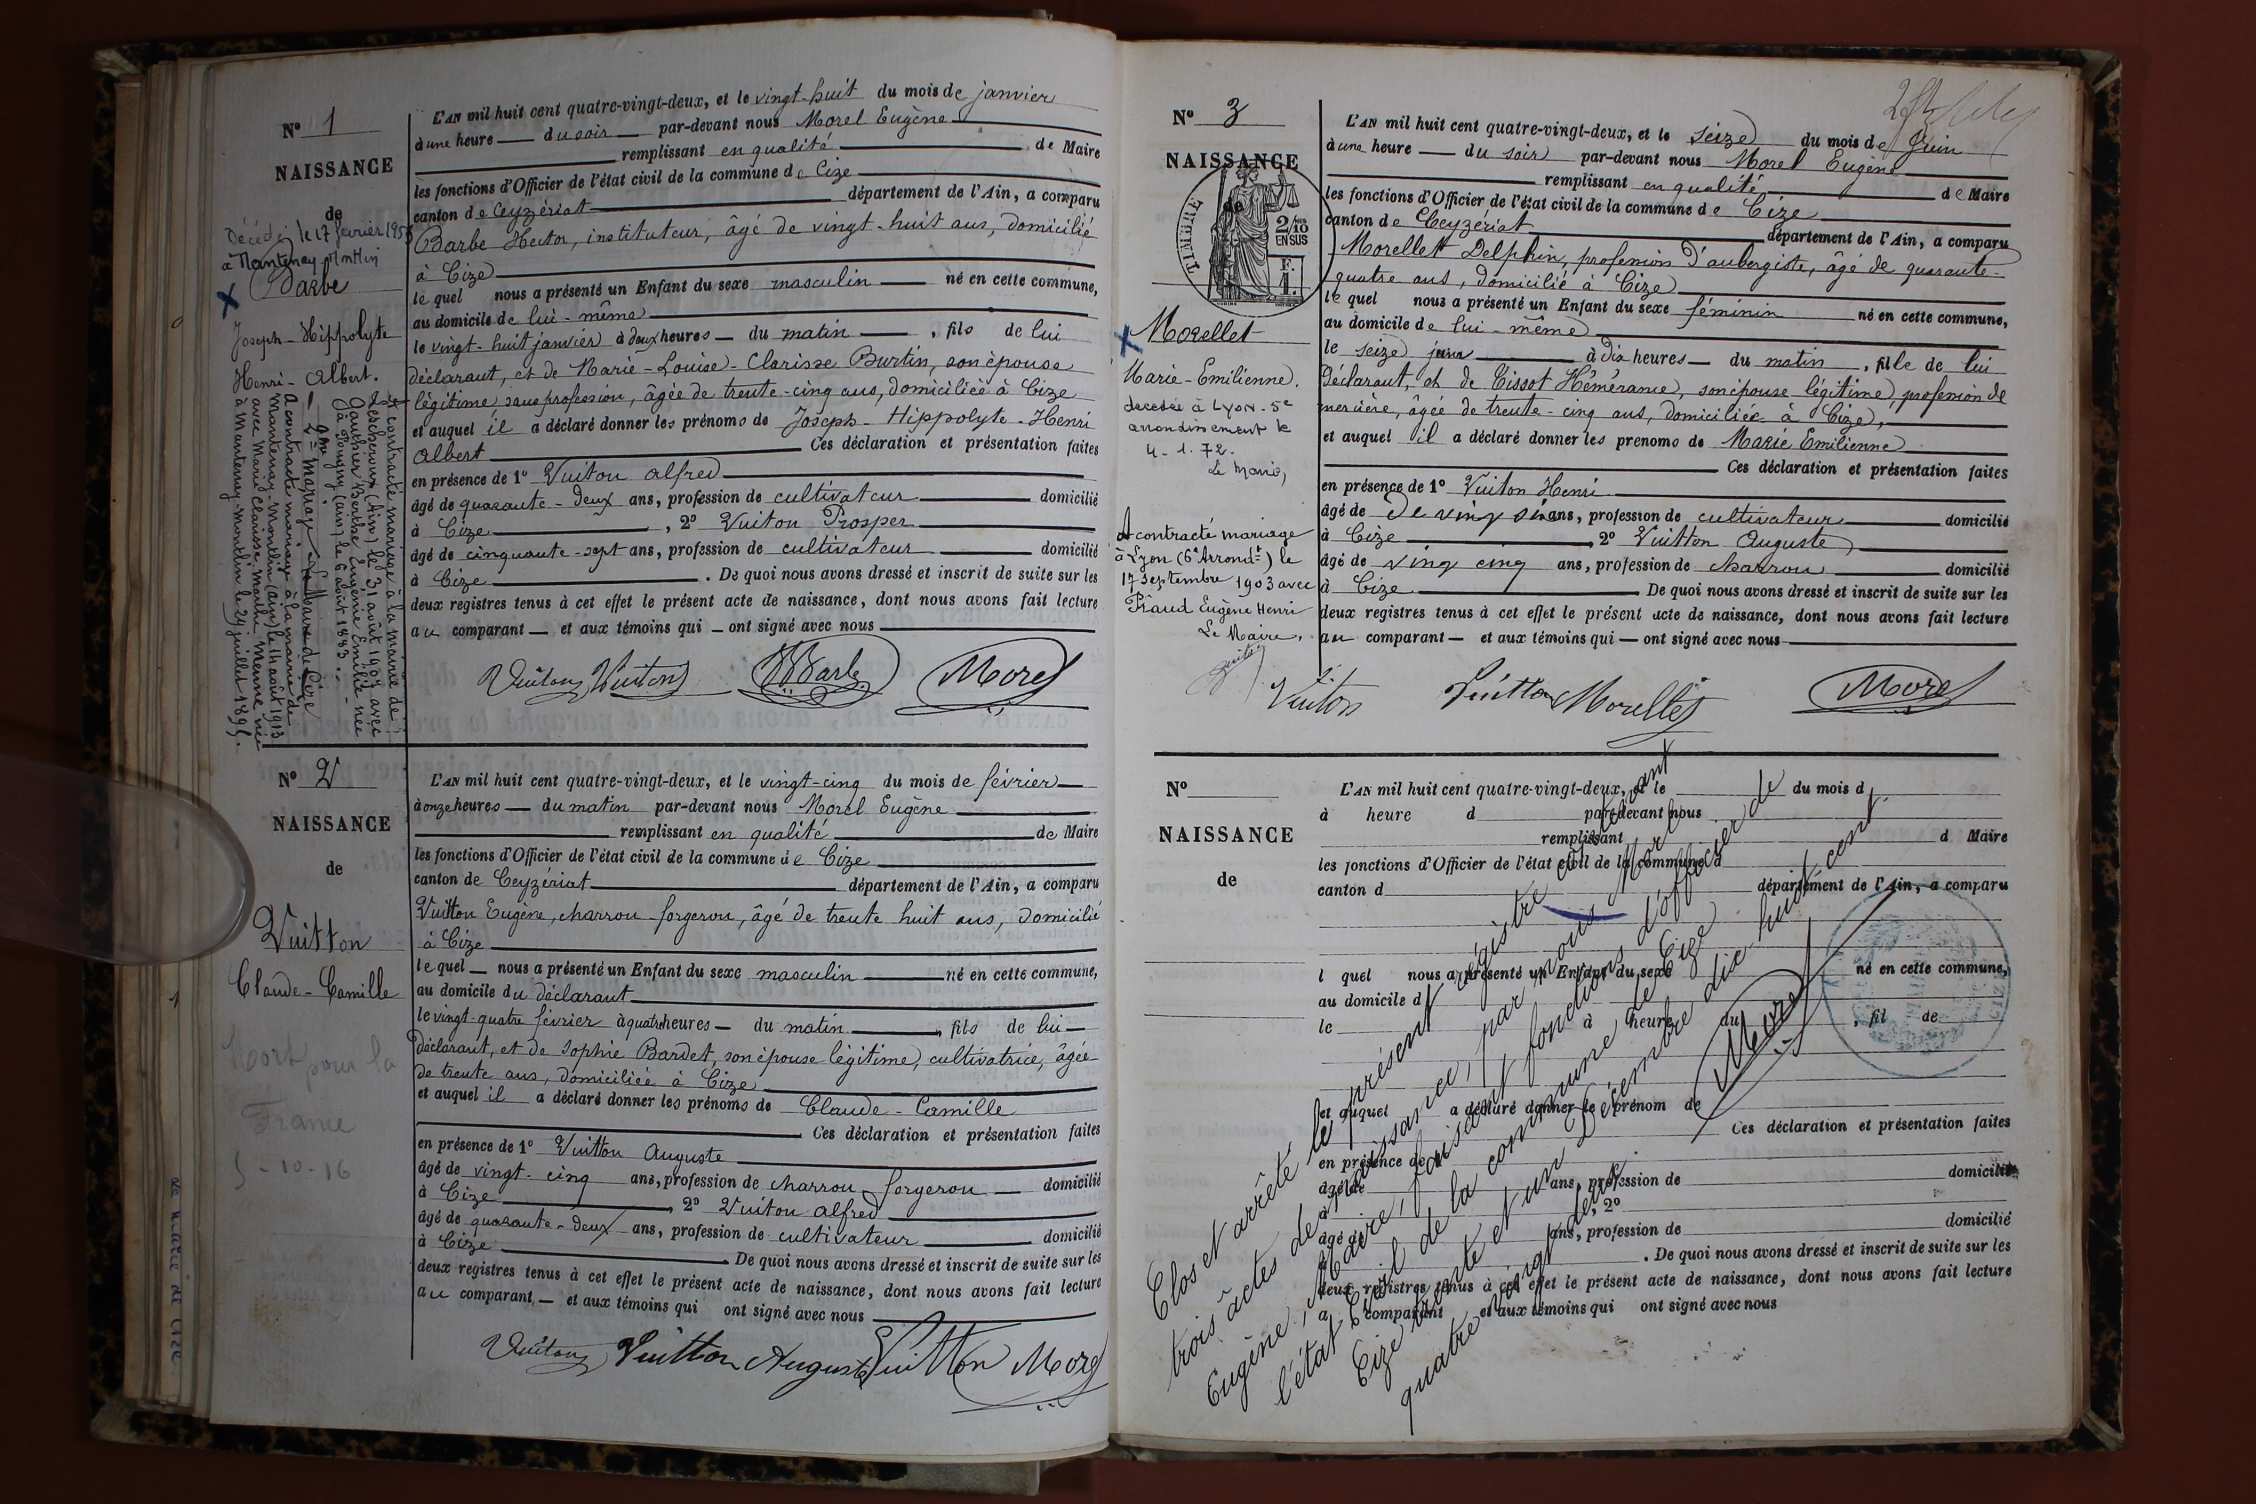 N° 1
NAISSANCE
de
Décédé le 17 février 195
à Mantenay-Montlin
Barbe
Joseph-Hippolyte
Henri-Albert.
A contracté mariage à la mairie de
(Ain) le 31 août 1907 avec
Gauthier Berthe Eugénie Emélie née
à Pougny (ain) le 6 août 1883.
2me mariage
Le Maire de Cize
A contracté mariage à la mairie de
Mantenay-Montlin (ain) le 14 août 1913
avec Marie Clarisse Marthe née
à Mantenay-Montlin le 29 juillet 1895.
L'AN mil huit cent quatre-vingt-deux, et le vingt-huit du mois de janvier
à une heure du soir par-devant nous Morel Eugène
remplissant en qualité de Maire
les fonctions d'Officier de l'état civil de la commune de Cize
canton de Ceyzériat département de l'Ain, a comparu
Barbe Hector, instituteur, âgé de vingt-huit ans, domicilié
à Cize
le quel nous a présenté un Enfant du sexe masculin né en cette commune,
au domicile de lui-même
le vingt-huit janvier à deux heures du matin, fils de lui
déclarant, et de Marie-Louise-Clarisse Burtin, son épouse
légitime sans profession, âgée de trente-cinq ans, domiciliée à Cize
et auquel il a déclaré donner les prénoms de Joseph-Hippolyte-Henri
Albert Ces déclaration et présentation faites
en présence de 1° Vuitou alfred
âgé de quarante-deux ans, profession de cultivateur domicilié
à Cize, 2° Vuitou Prosper
âgé de cinquante-sept ans, profession de cultivateur domicilié
à Cize. De quoi nous avons dressé et inscrit de suite sur les
deux registres tenus à cet effet le présent acte de naissance, dont nous avons fait lecture
au comparant et aux témoins qui ont signé avec nous
Vuitou Vuitou HBarbe Morel
N° 2
NAISSANCE
de
Vuitton
Claude-Camille
Mort pour la
France
5-10-16
L'AN mil huit cent quatre-vingt-deux, et le vingt-cinq du mois de février
à onze heures du matin par-devant nous Morel Eugène
remplissant en qualité de Maire
les fonctions d'Officier de l'état civil de la commune de Cize
canton de Ceyzériat département de l'Ain, a comparu
Vuitton Eugène, charron-forgeron, âgé de trente huit ans, domicilié
à Cize
le quel nous a présenté un Enfant du sexe masculin né en cette commune,
au domicile du déclarant
le vingt-quatre février à quatre heures du matin, fils de lui
déclarant, et de Sophie Bardet, son épouse légitime, cultivatrice, âgée
de trente ans, domiciliée à Cize
et auquel il a déclaré donner les prénoms de Claude-Camille
Ces déclaration et présentation faites
en présence de 1° Vuitton Auguste
âgé de vingt-cinq ans, profession de charron forgeron domicilié
à Cize, 2° Vuitou alfred
âgé de quarante-deux ans, profession de cultivateur domicilié
à Cize. De quoi nous avons dressé et inscrit de suite sur les
deux registres tenus à cet effet le présent acte de naissance, dont nous avons fait lecture
au comparant, et aux témoins qui ont signé avec nous
Vuitou Vuitton Auguste Vuitton Morel
N° 3
NAISSANCE
de
TIMBRE
2/10
EN SUS
F.
1.
Morellet
Marie-Emilienne.
décédée à Lyon-5e
arrondissement le
4-1.72.
Le Maire,
A contracté mariage
à Lyon (6e Arrondt) le
17 septembre 1903 avec
Praud Eugène Henri
Le Maire,
L'AN mil huit cent quatre-vingt-deux, et le seize du mois de Juin
à une heure du soir par-devant nous Morel Eugène
remplissant en qualité de Maire
les fonctions d'Officier de l'état civil de la commune de Cize
canton de Ceyzériat département de l'Ain, a comparu
Morellet Delphin, profession d'aubergiste, âgé de quarante-
quatre ans, domicilié à Cize
le quel nous a présenté un Enfant du sexe féminin né en cette commune,
au domicile de lui-même
le seize juin à dix heures du matin, fille de lui
Déclarant, et de Tissot Hémérance, son épouse légitime, profession de
mercière, âgée de trente-cinq ans, domiciliée à Cize,
et auquel il a déclaré donner les prénoms de Marie Emilienne
Ces déclaration et présentation faites
en présence de 1° Vuiton Henri
âgé de ans, profession de cultivateur domicilié
à Cize 2° Vuitton Auguste
âgé de vinq cinq ans, profession de charron domicilié
à Cize De quoi nous avons dressé et inscrit de suite sur les
deux registres tenus à cet effet le présent acte de naissance, dont nous avons fait lecture
au comparant et aux témoins qui ont signé avec nous
Vuiton Vuitton Morellet Morel
N°
NAISSANCE
de
L'AN mil huit cent quatre-vingt-deux, et le du mois d
à heure d par-devant nous
remplissant d Maire
les fonctions d'Officier de l'état civil de la commune d
canton d département de l'Ain, a comparu
l quel nous a présenté un Enfant du sexe né en cette commune,
au domicile d
le à heure du, fil de
et auquel a déclaré donner le prénom de
Ces déclaration et présentation faites
en présence de 1°
âgé de ans, profession de domicilié
à, 2°
âgé de ans, profession de domicilié
à. De quoi nous avons dressé et inscrit de suite sur les
deux registres tenus à cet effet le présent acte de naissance, dont nous avons fait lecture
a comparant et aux témoins qui ont signé avec nous
Clos et arrêté le présent régistre contenant
trois actes de naissance, par nous Morel
Eugène, Maire, faisant fonctions d'officier de
l'état Civil de la commune de Cize
Cize trente et un Décembre dix huit cent
quatre vingt deux
Morel
CIZE
DE MAIRIE DE CIZE